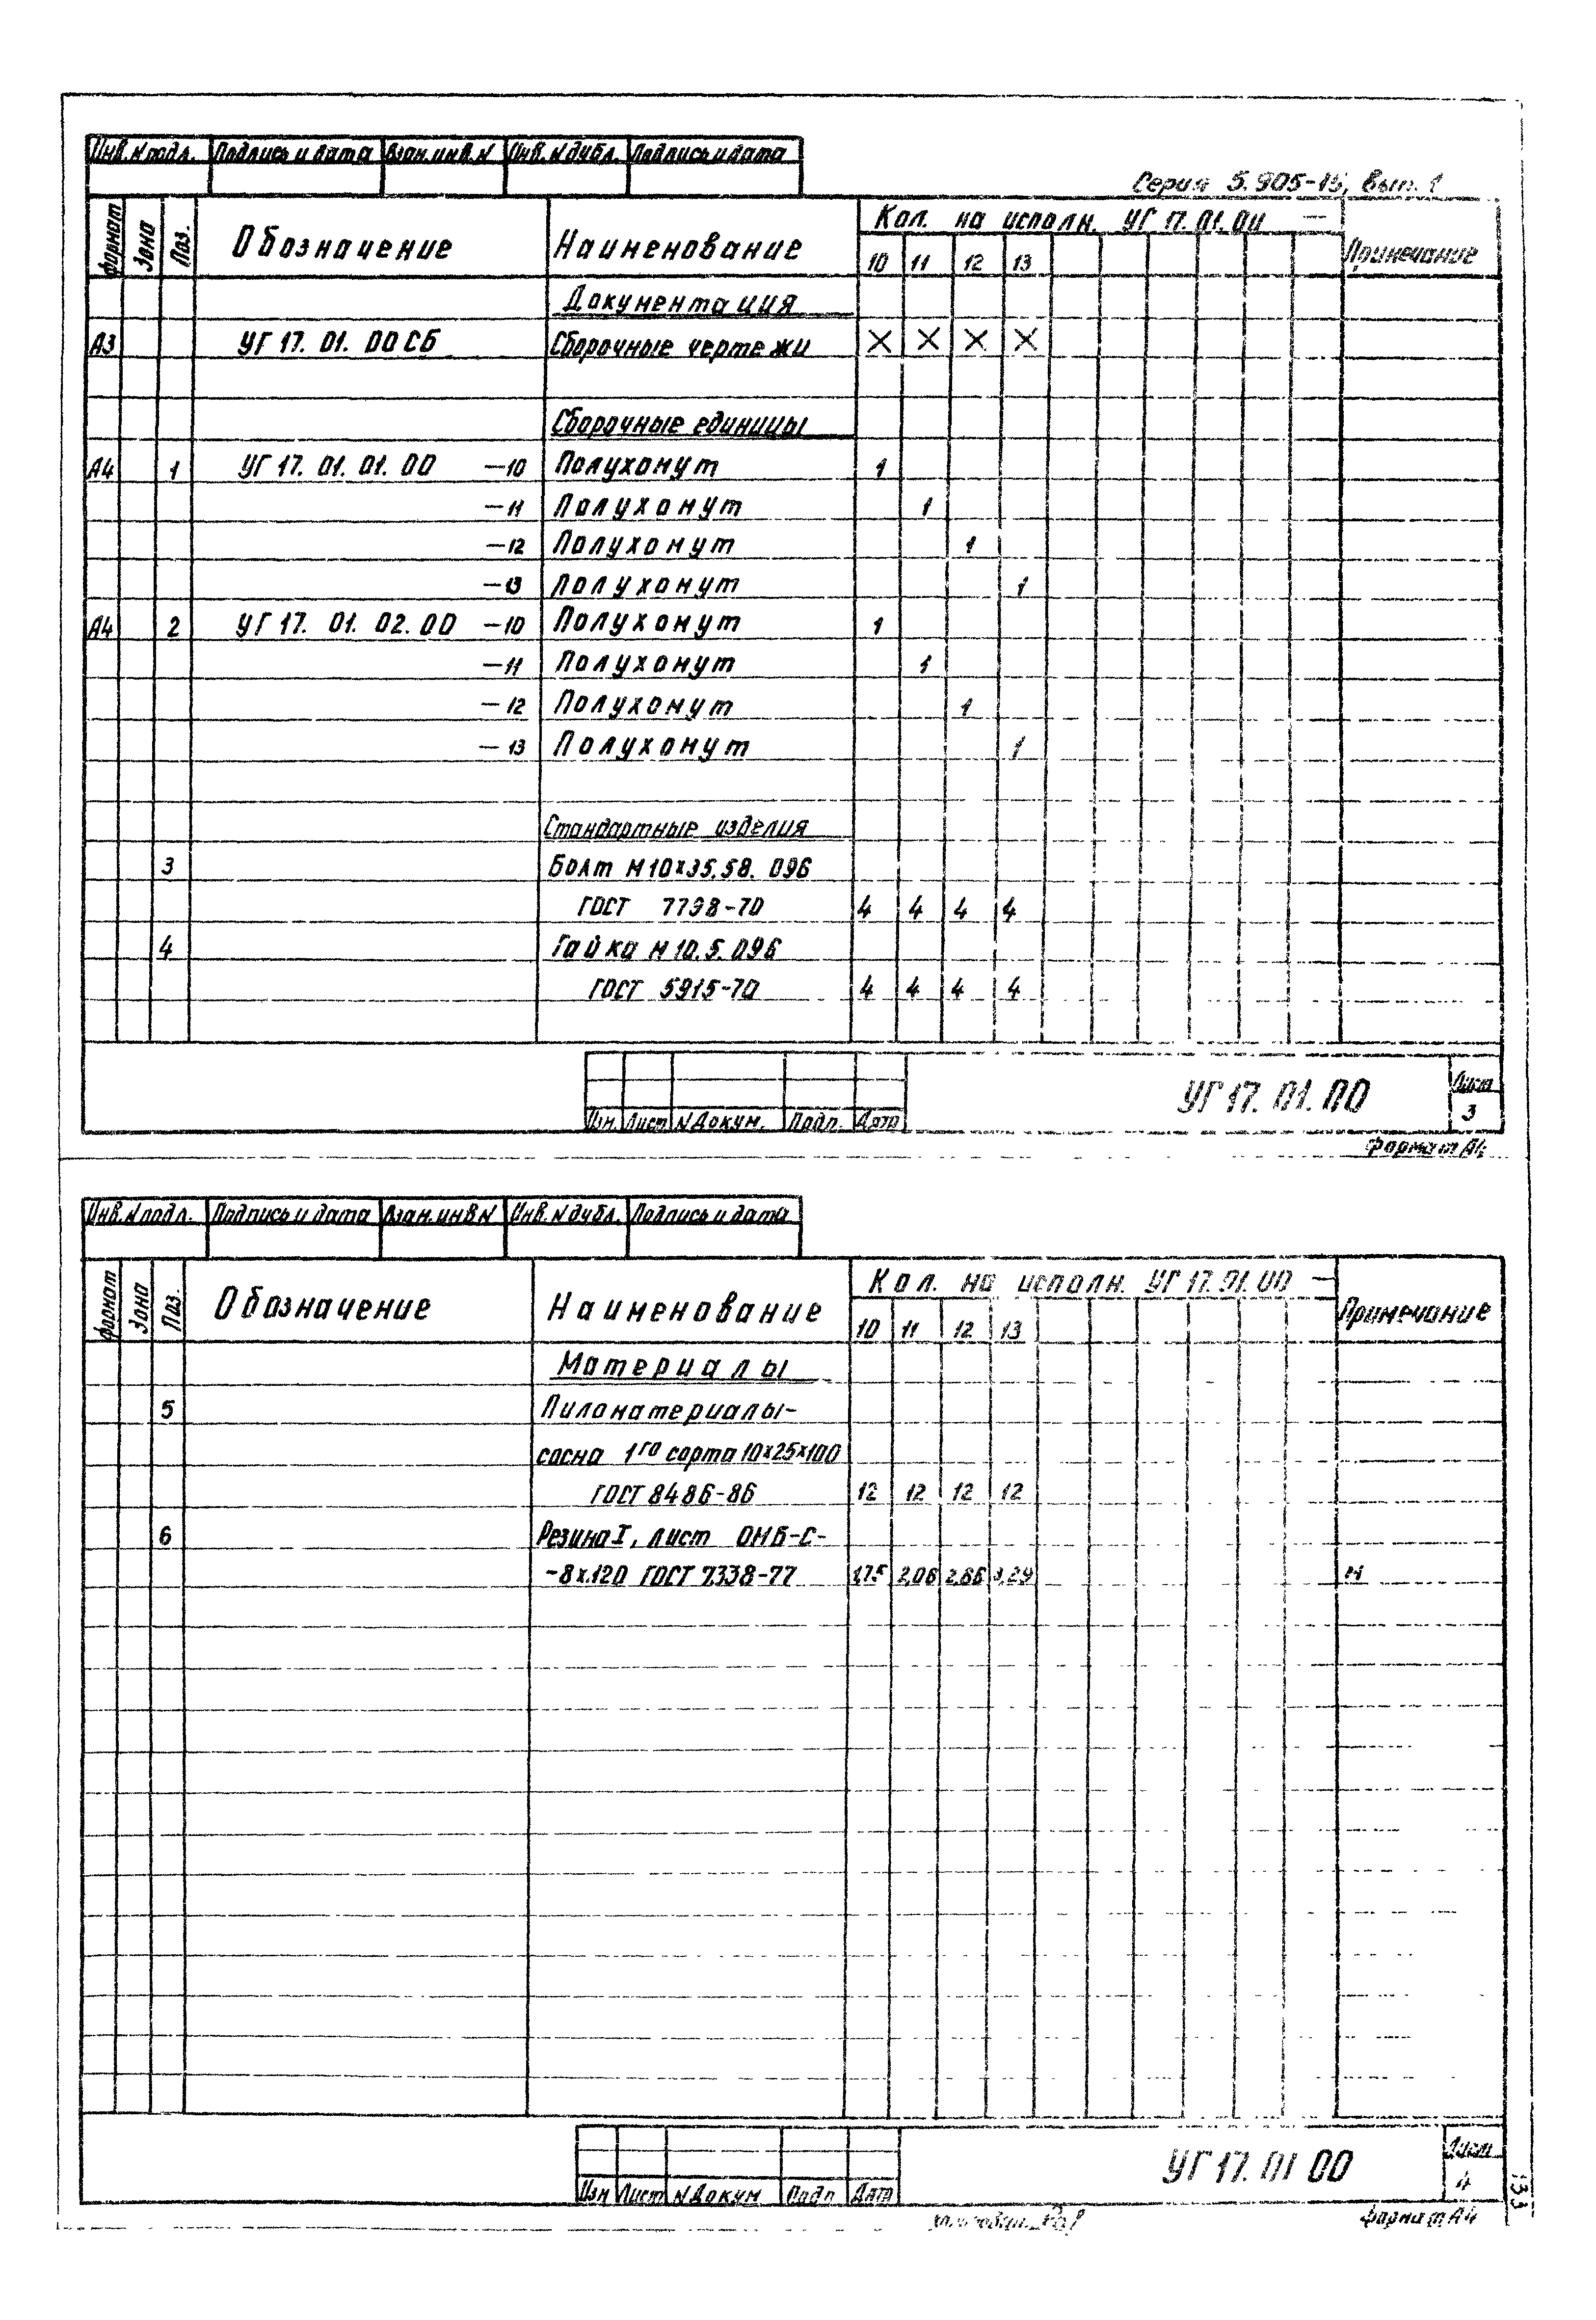 Инв.N подл. Подпись и дата Взам.инв.N Инв.N дубл. Подпись и дата
Серия 5.905-15, вып. 1
формат Зона Поз. Обозначение Наименование Кол. на исполн. УГ 17.01.00 — Примечание
10 11 12 13
Документация
А3 УГ 17. 01. 00 СБ Сборочные чертежи X X X X
Сборочные единицы
А4 1 УГ 17. 01. 01. 00 —10 Полухомут 1
—11 Полухомут 1
—12 Полухомут 1
—13 Полухомут 1
А4 2 УГ 17. 01. 02. 00 —10 Полухомут 1
—11 Полухомут 1
—12 Полухомут 1
—13 Полухомут 1
Стандартные изделия
3 Болт М10х35.58. 096
ГОСТ 7798-70 4 4 4 4
4 Гайка М10.5.096
ГОСТ 5915-70 4 4 4 4
УГ 17. 01. 00 Лист
Изм. Лист N Докум. Подп. Дата 3
Формат А4
Инв.N подл. Подпись и дата Взам.инв N Инв.N дубл. Подпись и дата
формат Зона Поз. Обозначение Наименование Кол. на исполн. УГ 17.01.00 — Примечание
10 11 12 13
Материалы
5 Пиломатериалы-
сосна 1го сорта 10х25х100
ГОСТ 8486-86 12 12 12 12
6 Резина I, лист ОМБ-С-
-8х120 ГОСТ 7338-77 1,75 2,06 2,66 3,29 м
УГ 17. 01 00 Лист
Изм Лист N Докум Подп Дата 4
формат А4
133